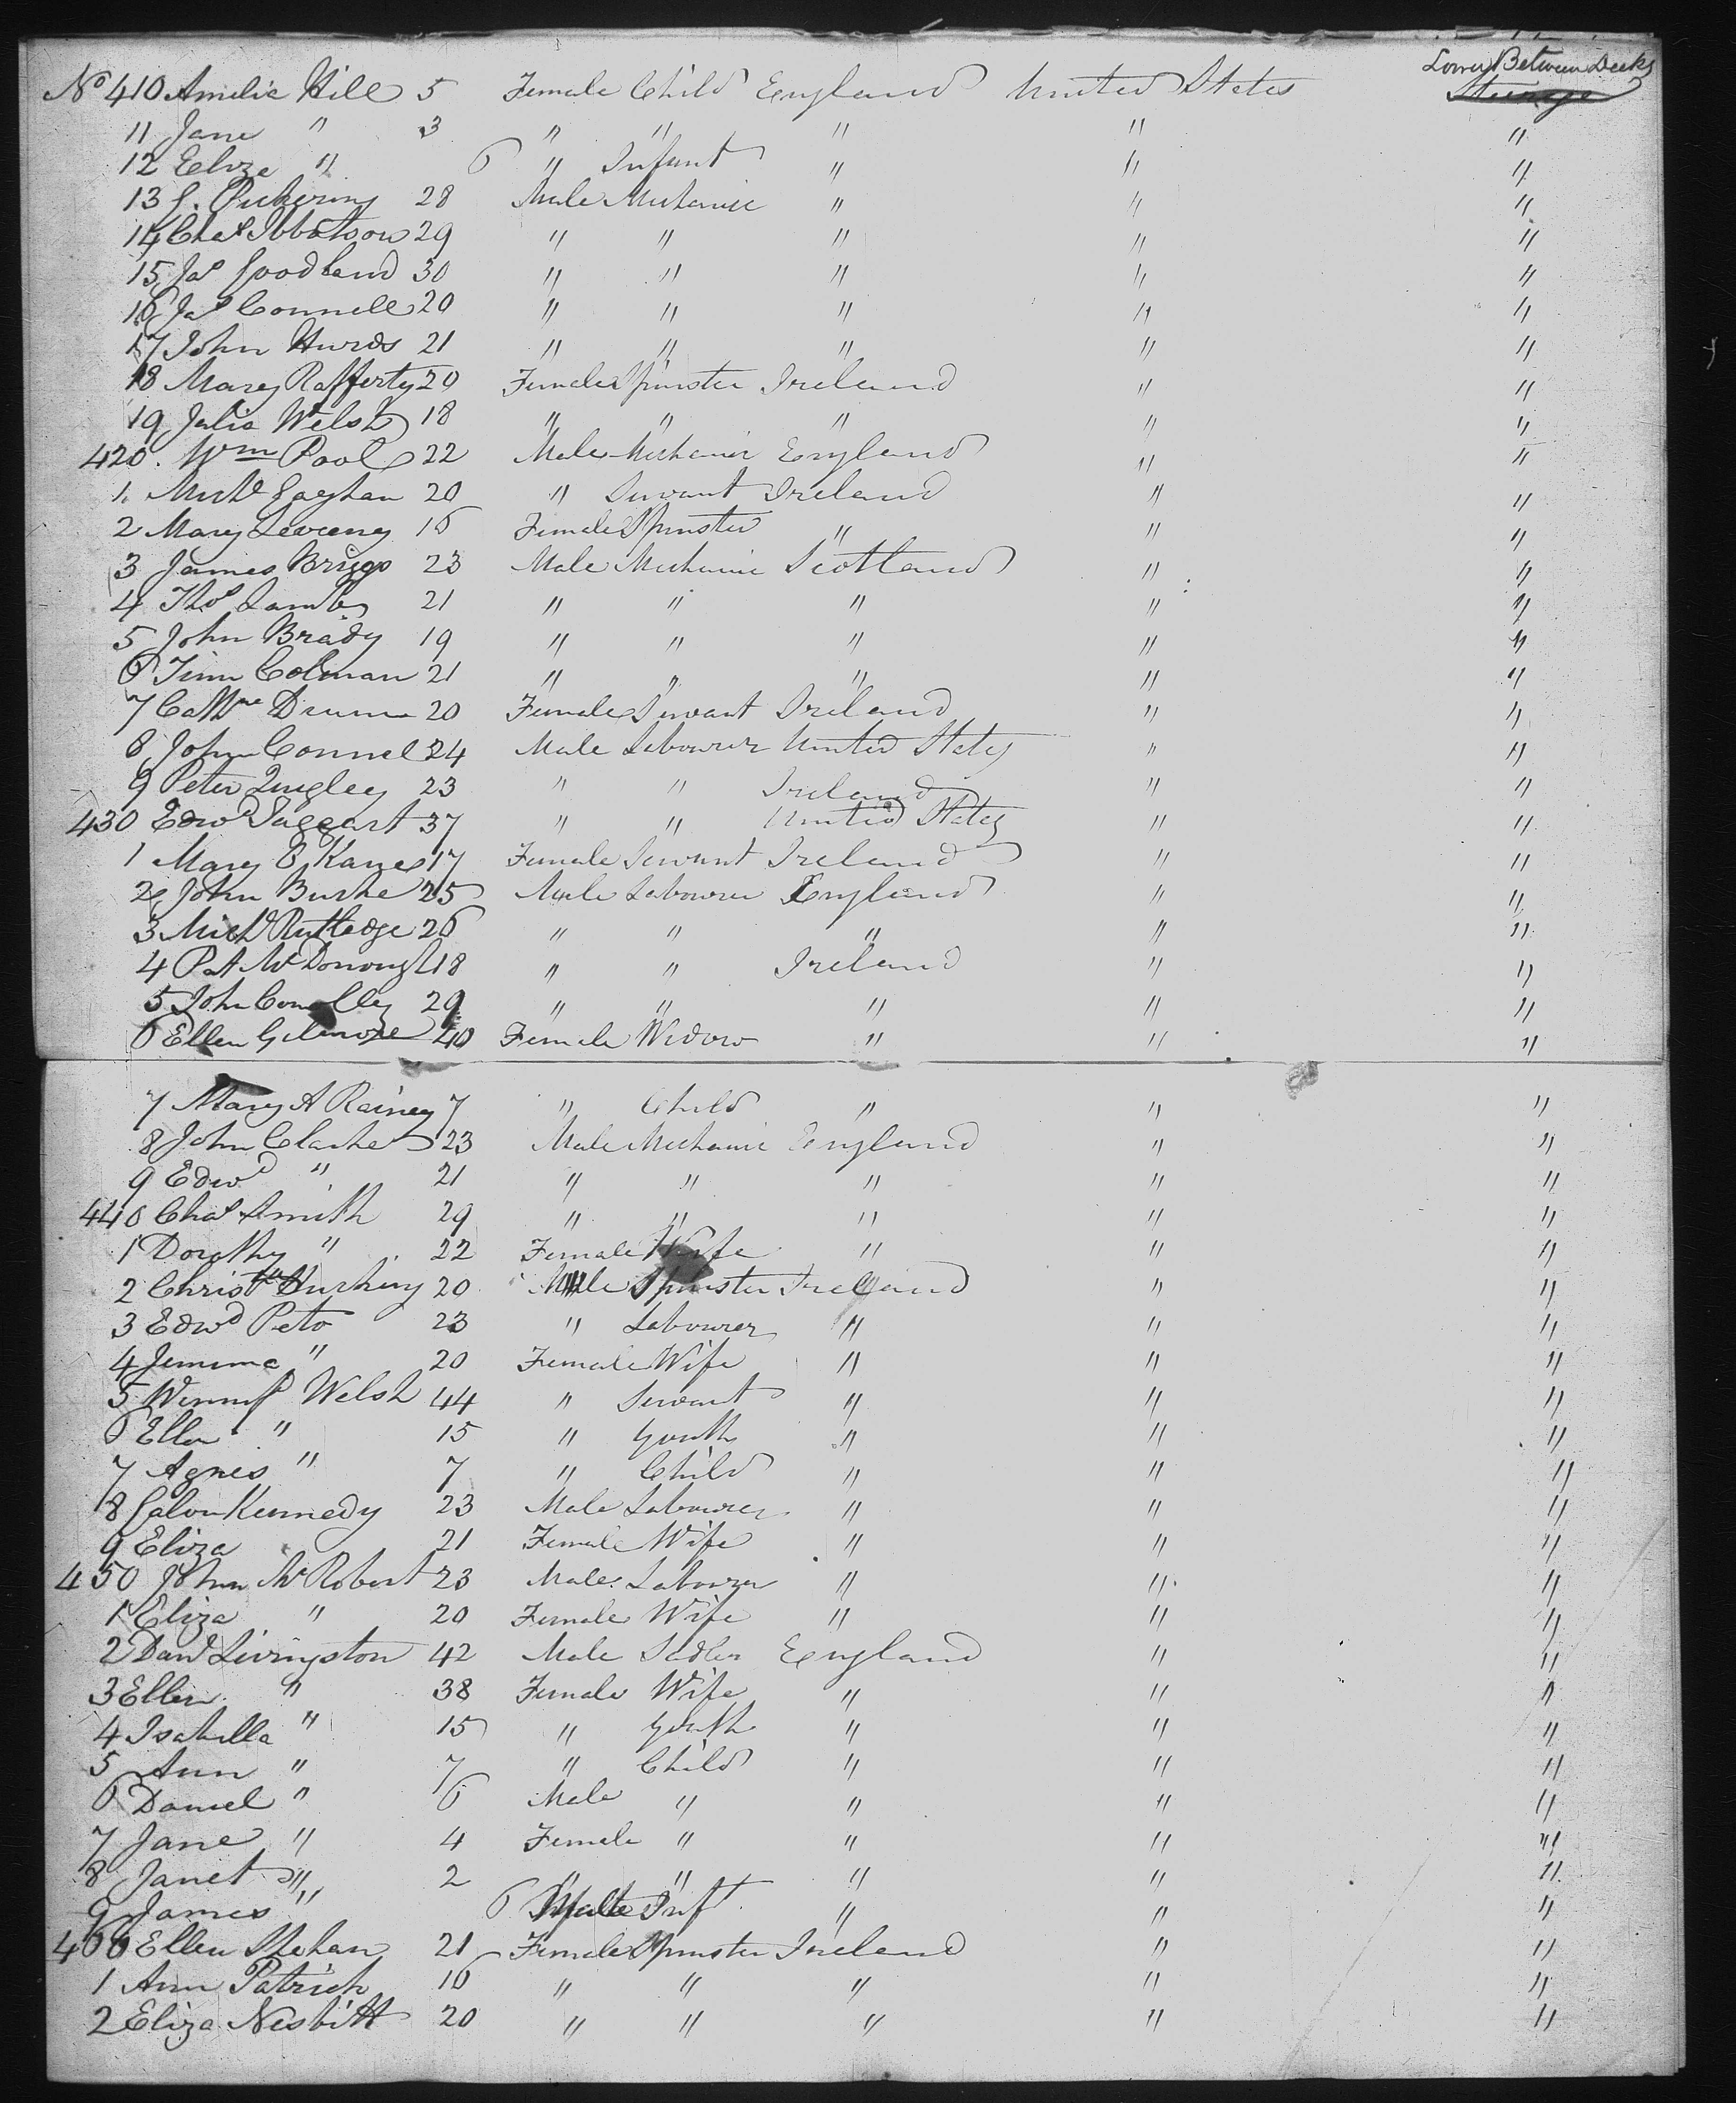 Lower Between Decks
No 410 Amelia Hill 5 Female Child England United States Steerage
11 Jane " 3 " " " " "
12 Eliza " 6 " Infant " " "
13 J. Pickering 28 Male Mechanic " " "
14 Chas Ibbotson 29 " " " " "
15 Jas Goodland 30 " " " " "
16 Jas Connell 20 " " " " "
17 John Hurds 21 " " " " "
18 Mary Rafferty 20 Female Spinster Ireland " "
19 Julia Welsh 18 " " " " "
420. Wm Pool 22 Male Mechanic England " "
1. Michl Gaghan 20 " Servant Ireland " "
2 Mary Leveeny 16 Female Spinster " " "
3 James Briggs 23 Male Mechanic Scotland " "
4 Thos Lamb 21 " " " " "
5 John Brady 19 " " " " "
6 Timn Colman 21 " " " " "
7 Cathne Drum 20 Female Servant Ireland " "
8 John Connel 24 Male Labourer United States " "
9 Peter Quigley 23 " " Ireland " "
430 Edwd Taggart 37 " " United States " "
1 Mary O'Kane 17 Female Servant Ireland " "
2 John Burke 25 Male Labourer England " "
3 Michl Rutledge 26 " " " " "
4 Pat McDonough 18 " " Ireland " "
5 John Conolley 29 " " " " "
6 Ellen Gilmore 40 Female Widow " " "
7 Mary A Rainey 7 " Child " " "
8 John Clarke 23 Male Mechanic England " "
9 Edwd " 21 " " " " "
440 Chas Smith 29 " " " " "
1 Dorothy " 22 Female Wife " " "
2 Christr 20 Male Spinster Ireland " "
3 Edwd Peto 23 " Labourer " " "
4 Jemima " 20 Female Wife " " "
5 Winnifd Welsh 44 " Servant " " "
6 Ellen " 15 " Youth " " "
7 Agnes " 7 " Child " " "
8 Galvn Kennedy 23 Male Labourer " " "
9 Eliza 21 Female Wife " " "
450 John McRobert 23 Male Labourer " " "
1 Eliza " 20 Female Wife " " "
2 Davd Livingston 42 Male Sadler England " "
3 Ellen " 38 Female Wife " " "
4 Isabella " 15 " Youth " " "
5 Ann " 7 " Child " " "
6 Daniel " 6 Male " " " "
7 Jane " 4 Female " " " "
8 Janet " 2 " " " " "
9 James " 6 Male Inft " " "
460 Ellen Skehan 21 Female Spinster Ireland " "
1 Ann Patrick 16 " " " " "
2 Eliza Nesbitt 20 " " " " "